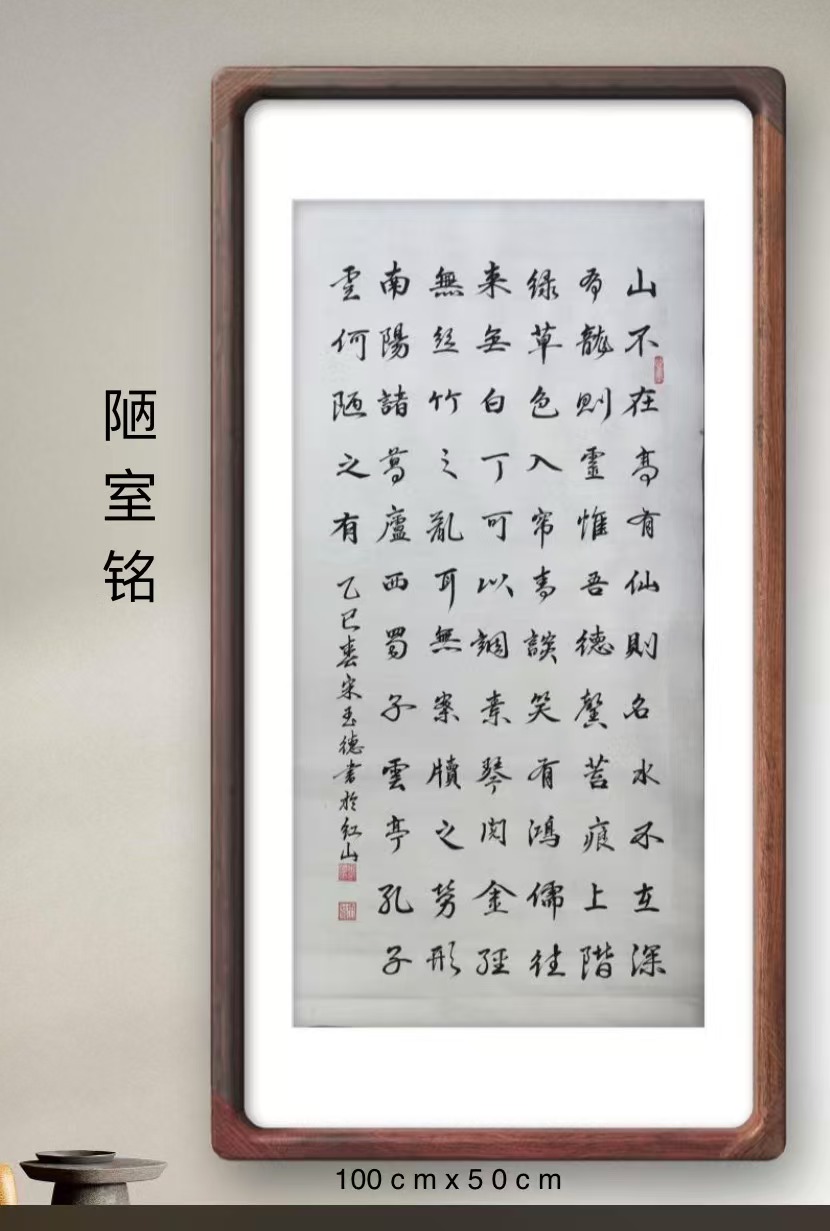 陋室铭
山不在高有仙則名水不在深
有龍则靈惟吾德馨苔痕上階
绿草色入帘青談笑有鴻儒往
来無白丁可以調素琴閱金經
無丝竹之亂耳無案牘之勞形
南陽諸葛廬西蜀子雲亭孔子
雲何陋之有
乙巳春宋玉德書於红山
100cmx50cm